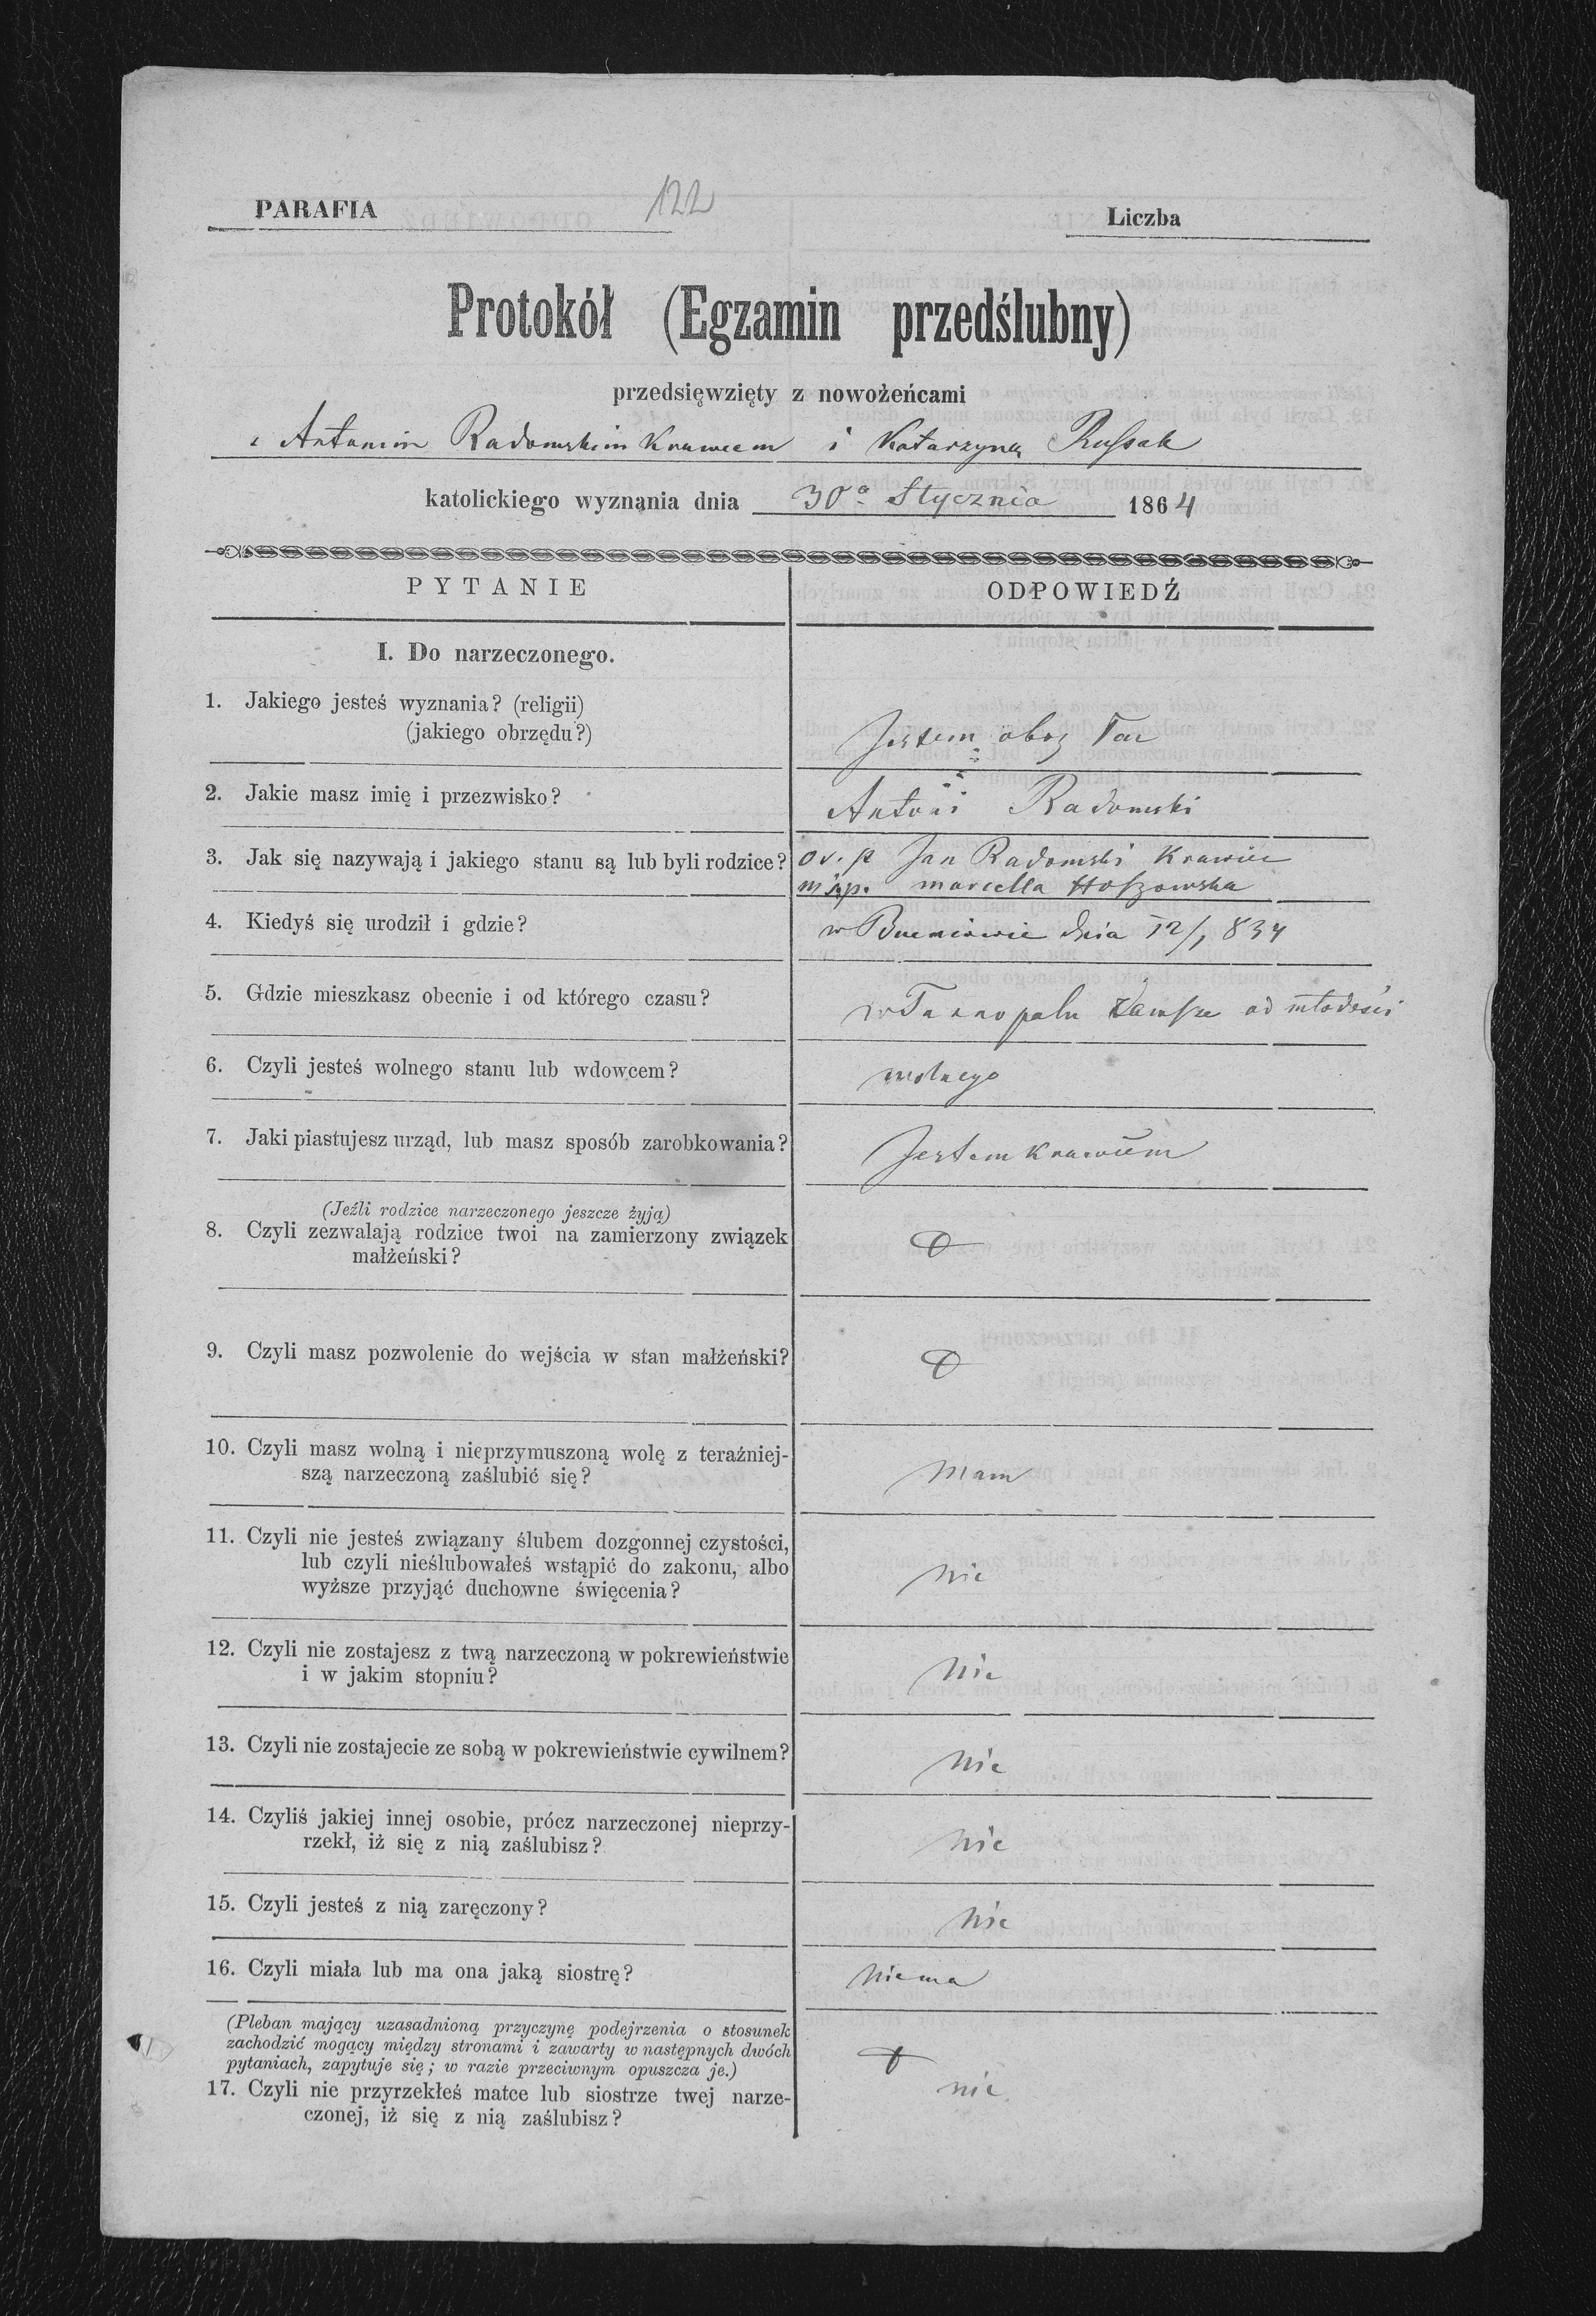 PARAFIA 122 Liczba
Protokół (Egzamin przedślubny)
przedsięwzięty z nowożeńcami
z Antonim Radomskim Krawcem i Katarzyną Russak
katolickiego wyznania dnia 30º Stycznia 1864
PYTANIE ODPOWIEDŹ
I. Do narzeczonego.
1. Jakiego jesteś wyznania? (religii)
(jakiego obrzędu?) Jestem obrz łac
2. Jakie masz imię i przezwisko? Antoni Radomski
3. Jak się nazywają i jakiego stanu są lub byli rodzice? Jan Radomski Krawiec
marcella Hoszowska
4. Kiedyś się urodził i gdzie? w dnia 12/1 834
5. Gdzie mieszkasz obecnie i od którego czasu? w Tarnopolu zawsze od młodości
6. Czyli jesteś wolnego stanu lub wdowcem? wolnego
7. Jaki piastujesz urząd, lub masz sposób zarobkowania? Jestem krawcem
(Jeźli rodzice narzeczonego jeszcze żyją)
8. Czyli zezwalają rodzice twoi na zamierzony związek
małżeński?
9. Czyli masz pozwolenie do wejścia w stan małżeński?
10. Czyli masz wolną i nieprzymuszoną wolę z teraźniej-
szą narzeczoną zaślubić się? mam
11. Czyli nie jesteś związany ślubem dozgonnej czystości,
lub czyli nieślubowałeś wstąpić do zakonu, albo
wyższe przyjąć duchowne święcenia? nie
12. Czyli nie zostajesz z twą narzeczoną w pokrewieństwie
i w jakim stopniu? nie
13. Czyli nie zostajecie ze sobą w pokrewieństwie cywilnem? nie
14. Czyliś jakiej innej osobie, prócz narzeczonej nieprzy-
rzekł, iż się z nią zaślubisz? nie
15. Czyli jesteś z nią zaręczony? nie
16. Czyli miała lub ma ona jaką siostrę? niema
(Pleban mający uzasadnioną przyczynę podejrzenia o stosunek
zachodzić mogący między stronami i zawarty w następnych dwóch
pytaniach, zapytuje się; w razie przeciwnym opuszcza je.)
17. Czyli nie przyrzekłeś matce lub siostrze twej narze- nie
czonej, iż się z nią zaślubisz?